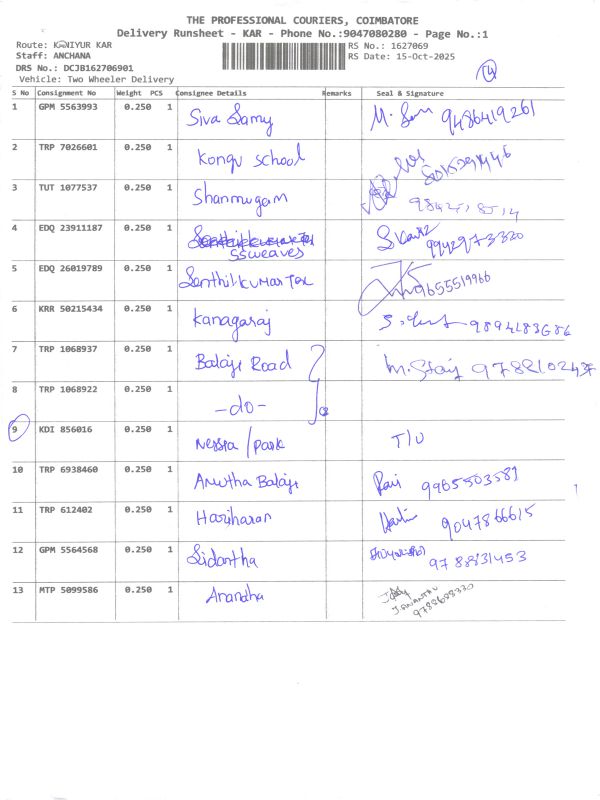 THE PROFESSIONAL COURIERS, COIMBATORE
Delivery Runsheet - KAR - Phone No.:9047080280 - Page No.:1
Route: KANIYUR KAR RS No.: 1627069
Staff: ANCHANA RS Date: 15-Oct-2025
DRS No.: DCJB162706901
Vehicle: Two Wheeler Delivery
S No Consignment No Weight PCS Consignee Details Remarks Seal & Signature
1 GPM 5563993 0.250 1 Siva Samy 9486419261
2 TRP 7026601 0.250 1 Kongu School
3 TUT 1077537 0.250 1 Shanmugam
4 EDQ 23911187 0.250 1 SSWEAVES 9942973320
5 EDQ 26019789 0.250 1 Senthilkumar Tex 9655519966
6 KRR 50215434 0.250 1 Kanagaraj 9894183686
7 TRP 1068937 0.250 1 Balaji Road
8 TRP 1068922 0.250 1 -do-
9 KDI 856016 0.250 1 T/U
10 TRP 6938460 0.250 1 Balaji 9965503581
11 TRP 612402 0.250 1 Hariharan 9047866615
12 GPM 5564568 0.250 1 Sidantha
13 MTP 5099586 0.250 1 Anandha 9788688330